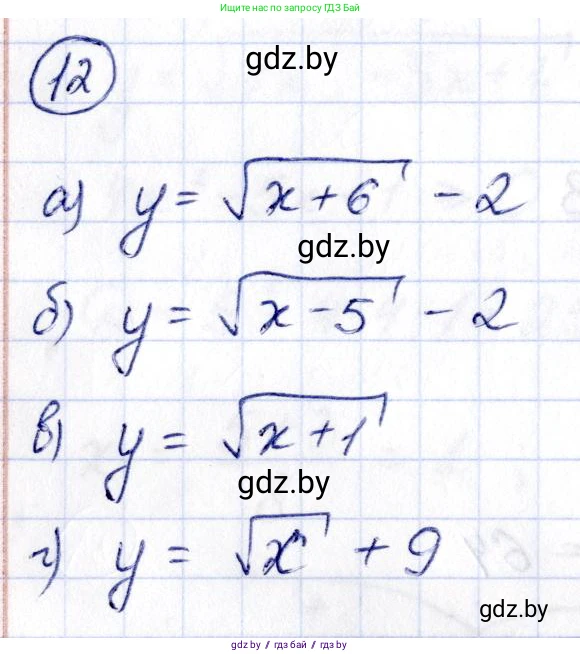 Ищите нас по запросу ГДЗ Бай
12
gdz.by
а) y = √x+6 - 2
gdz.by
б) y = √x-5 - 2
в) y = √x+1
gdz.by
г) y = √x + 9
gdz.by
gdz.by // гдз бай // gdz.by